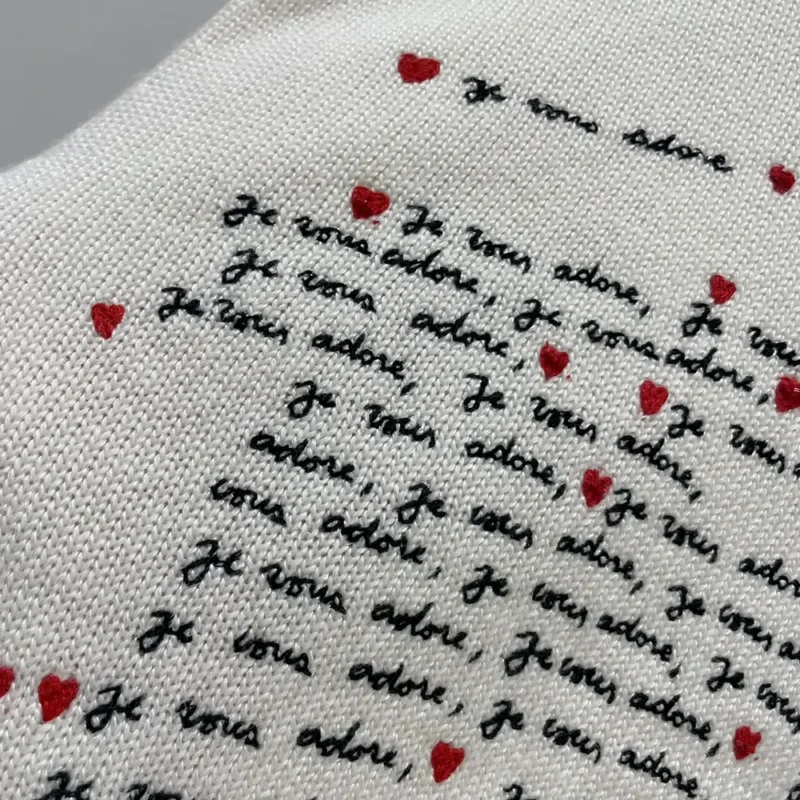 Je vous adore
Je vous adore, Je vous
Je vous adore, Je vous adore,
Je vous adore, Je vous
Je vous adore, Je vous adore,
Je vous adore, Je vous adore
adore, Je vous adore, Je vous
vous adore, Je vous adore, Je vous
Je vous adore, Je vous adore,
Je vous adore, Je vous adore,
Je vous adore,
Je vous